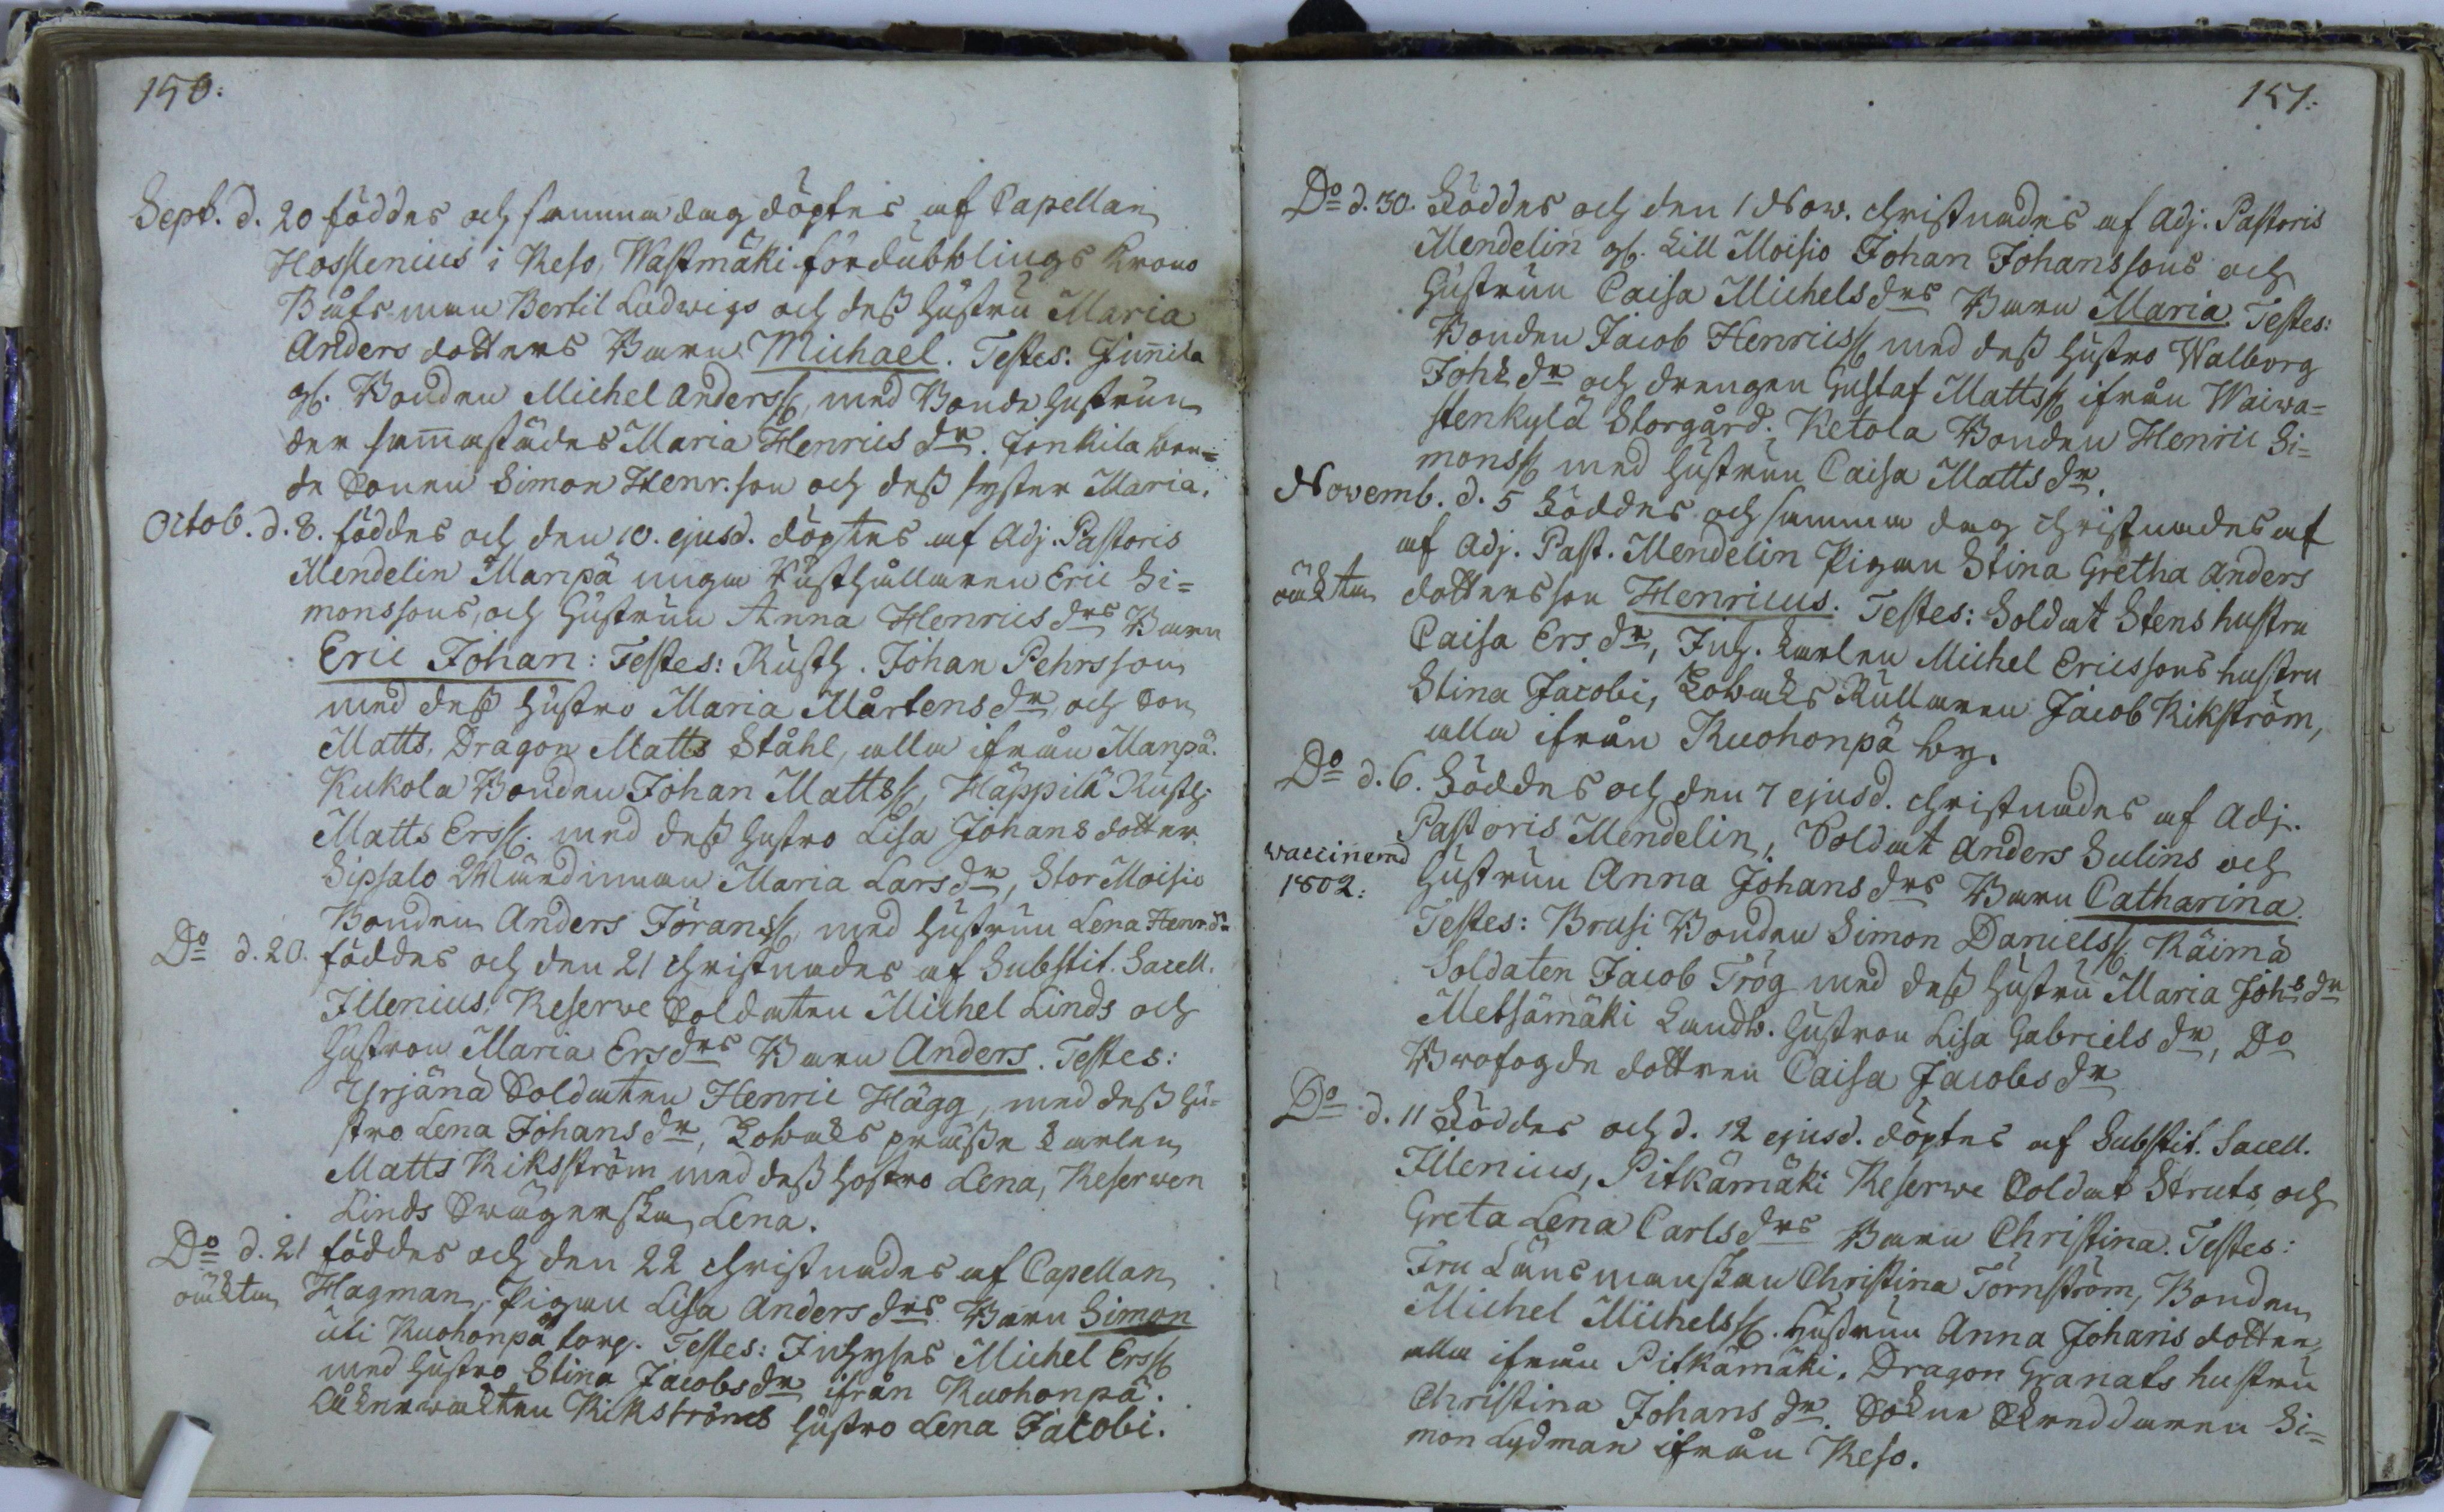 150:
Sept. d. 20 föddes och samma dag döptes af Capellan
Hossenius i Reso, Wastmäki fördubblings Krono
Båtsman Bertil Ludwigs och dess Hustru Maria
Anders dotters Barn Michael. Testes: Junnila
gl. Bonden Michel Anderss. med Bonde hustrun
der sammastädes Maria Henrics dr. Jonkila bon=
de Sonen Simon Henr.son och dess syster Maria.
Octob. d. 8. föddes och den 10. ejusd. döptes af Adj. Pastoris
Mendelin Manpä unga Rusthållaren Eric Si=
monssons, och Hustrun Anna Henrics drs Barn
Eric Johan: Testes: Rusth. Johan Pehrsson
med dess Hustro Maria Mårtens dr och Son
Matts, Dragon Matts Ståhl, alla ifrån Manpä.
Kukola Bonden Johan Mattss. Häppilä Rusth.
Matts Erss. med dess Hustro Lisa Johans dotter.
Sipsalo Wärdinnan Maria Lars dr, Stor Moisio
Bonden Anders Jöranss. med Hustrun Lena Henr.dr
Do d. 20. föddes och den 21 christnades af Substit. Sacell.
Illenius, Reserve Soldaten Michel Linds och
Hustron Maria Ersdrs Barn Anders. Testes:
Yrjänä Soldaten Henric Hägg, med dess Hu=
stro Lena Johans dr, Tobaks prässe Karlen
Matts Rikström med dess Hostro Lena, Reserven
Linds Swägerska Lena.
Do d. 21 föddes och den 22 christnades af Capellan
oäkta Hagman, Pigan Lisa Anders drs Barn Simon
uti Kuohonpä torp. Testes: Inhyses Michel Erss.
med Hustro Stina Jacobs dr ifrån Kuohonpä.
Åkerwakten Rikströms Hustro Lena Jacobi.
151:
Do d. 30. Föddes och den 1 Now. christnades af Adj. Pastoris
Mendelin gl. Lill Moisio Johan Johanssons och
Hustrun Caisa Michels drs Barn Maria Testes:
Bonden Jacob Henricss. med dess Hustro Walborg
Johs dr och drengen Gustaf Mattss. ifrån Waiwa=
stenkylä Storgård. Ketola Bonden Henric Si=
monss. med Hustrun Caisa Matts dr.
Novemb. d. 5 Föddes och samma dag christnades af
af Adj. Past. Mendelin Pigan Stina Gretha Anders
oäkta dotters son Henricus. Testes: Soldat Stens hustru
Caisa Ers dr, Inh. Karlen Michel Ericssons hustru
Stina Jacobi, Tobaks Rullaren Jacob Rikström,
alla ifrån Kuohonpä by.
Do d. 6. Föddes och den 7 ejusd. christnades af Adj.
Pastoris Mendelin, Soldat Anders Sulins och
vaccinerad
1802:
Hustrun Anna Johans drs Barn Catharina.
Testes: Brusi Bonden Simon Danielss. Räimä
Soldaten Jacob Trög med dess Hustru Maria Johs dr
Metsämäki Landb. Hustron Lisa Gabriels dr, Do
Brofogde dottren Caisa Jacobs dr
Do d. 11 Föddes och d. 12 ejusd. döptes af Substit. Sacell.
Illenius, Pitkämäki Reserve Soldat Struts, och
Greta Lena Carls drs Barn Christina. Testes:
Fru Länsmanskan Christina Törnström, Bonden
Michel Michelss. Hustrun Anna Johans dotter,
alla ifrån Pitkämäki. Dragon Granats hustru
Christina Johans dr. Sokne Skreddaren Si=
mon Lydman ifrån Reso.